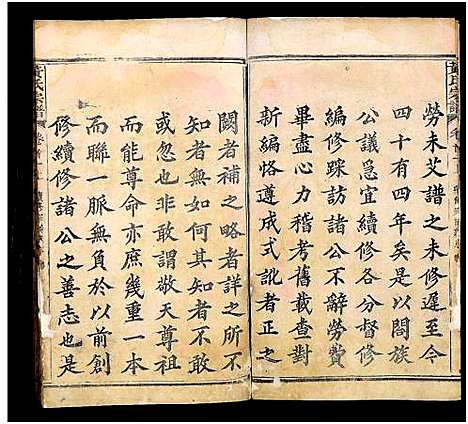 黃氏宗譜
勞未艾譜之未修遲至今
四十有四年矣是以閤族
公議爲宜續修各分督修
編修踩訪諸公不辭勞費
畢盡心力稽考舊載查對
新編遵成式訛者正之
闕者補之略者詳之所不
知者無如何其知者不敢
或忽也非敢謂敬天尊祖
而能尊命亦庶幾重一本
而聯一脈無負於以前創
修續修諸公之善志也是
黃氏宗譜
卷首